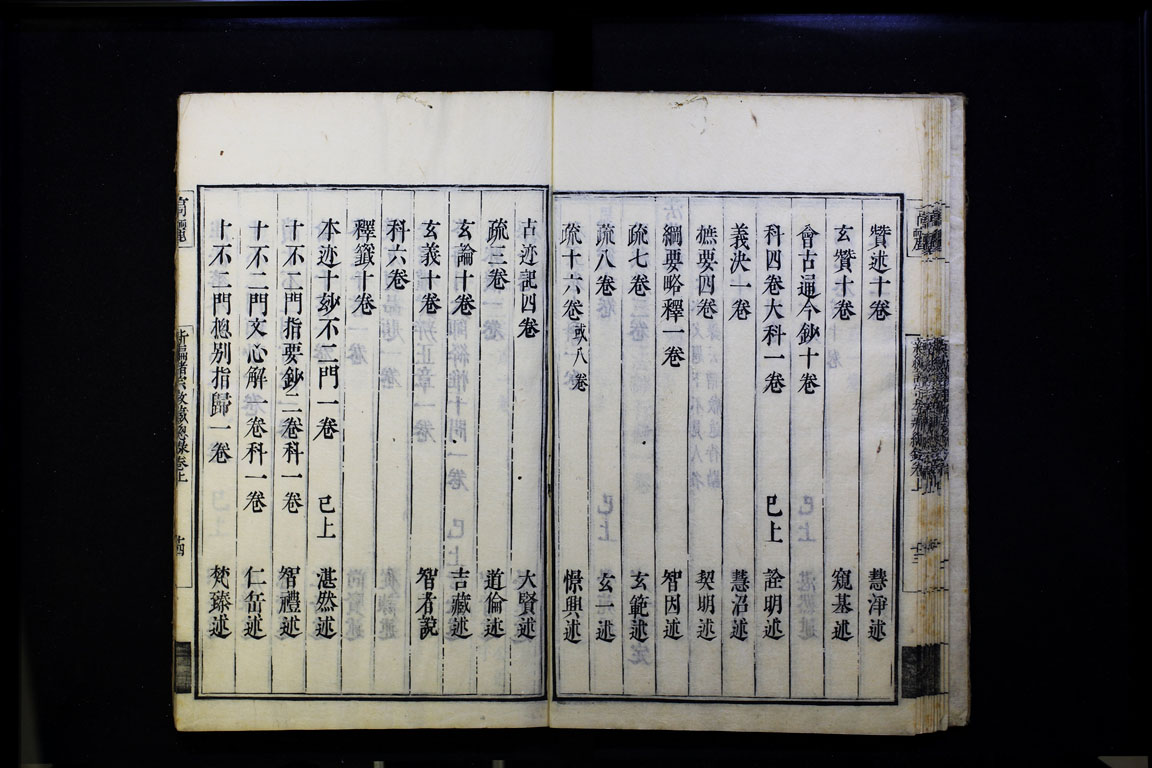 賛述十卷 慧淨述
玄贊十卷 窺基述
會古通今鈔十卷
科四卷大科一卷 已上 詮明述
義決一卷 慧沼述
攝要四卷 契明述
綱要略釋一卷 智因述
疏七卷 玄範述
疏八卷 玄一述
疏十六卷或八卷 憬興述
古迹記四卷 大賢述
疏三卷 道倫述
玄論十卷 吉藏述
玄義十卷 智者說
科六卷
釋籤十卷
本迹十玅不二門一卷 已上 湛然述
十不二門指要鈔二卷科一卷 智禮述
十不二門文心解一卷科一卷 仁岳述
十不二門揔别指歸一卷 梵臻述
高麗 新編諸宗教藏總錄卷上 十四